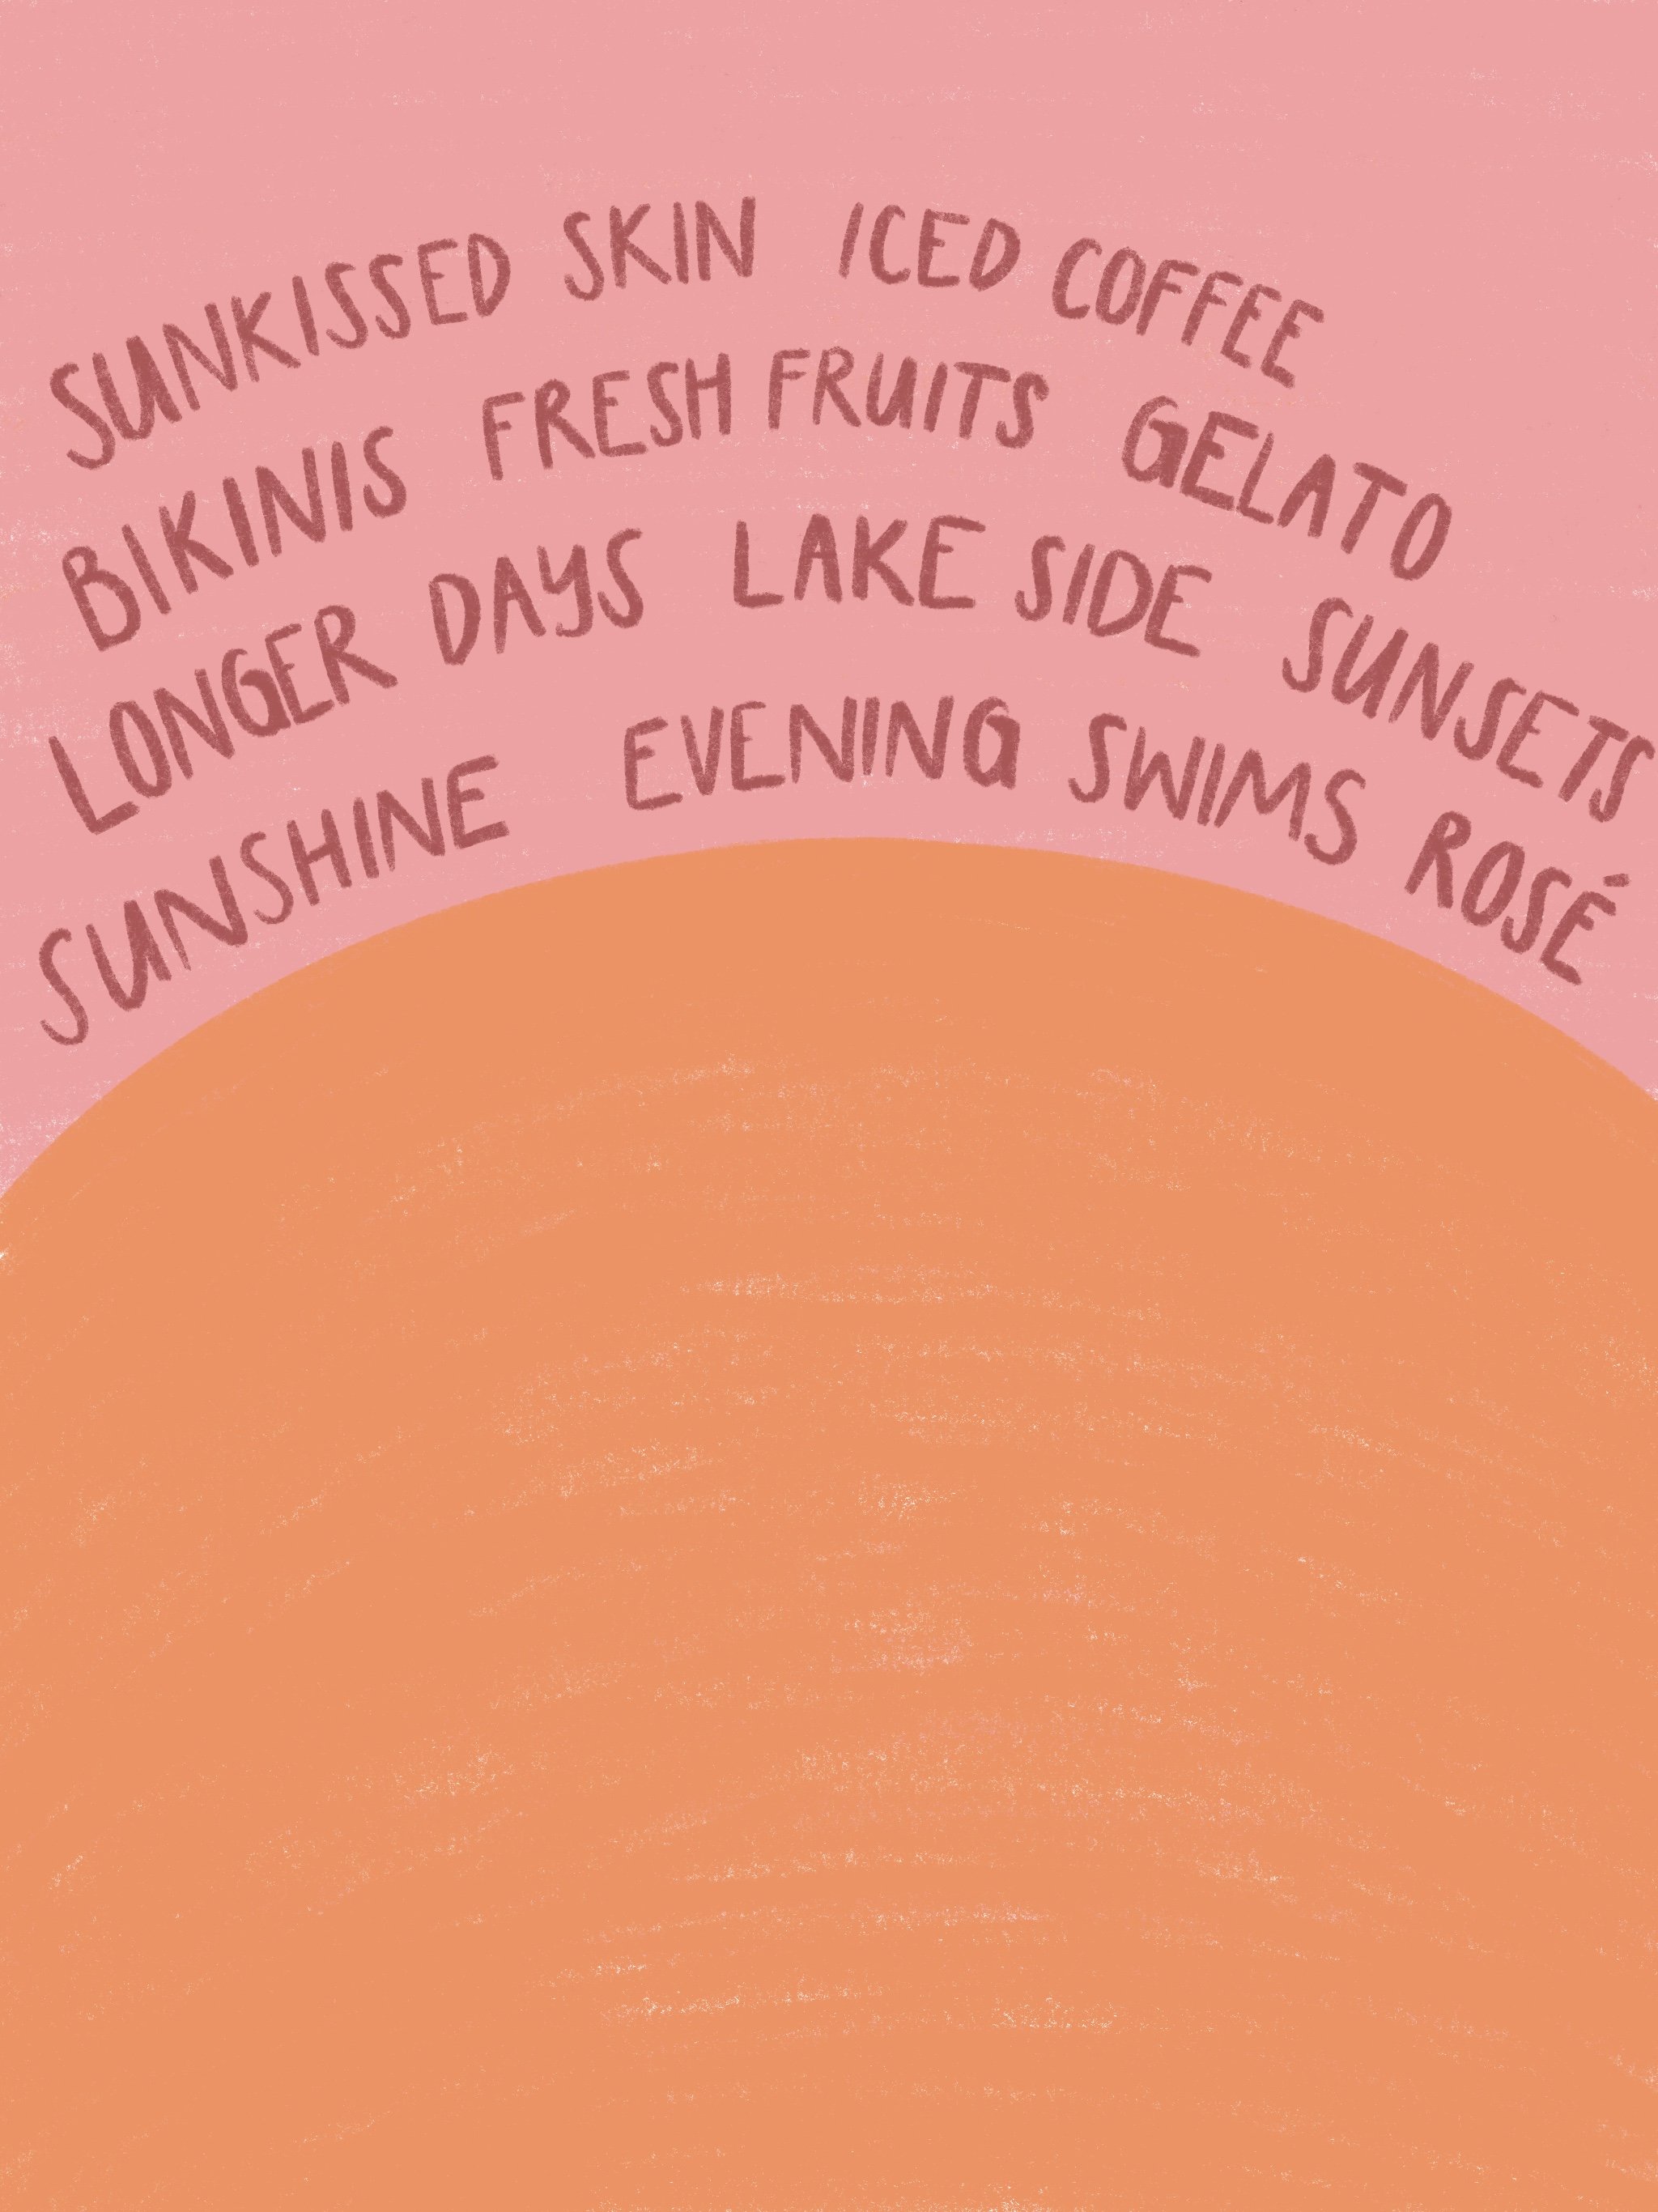 SUNKISSED SKIN ICED COFFEE
BIKINIS FRESH FRUITS GELATO
LONGER DAYS LAKE SIDE SUNSETS
SUNSHINE EVENING SWIMS ROSÉ